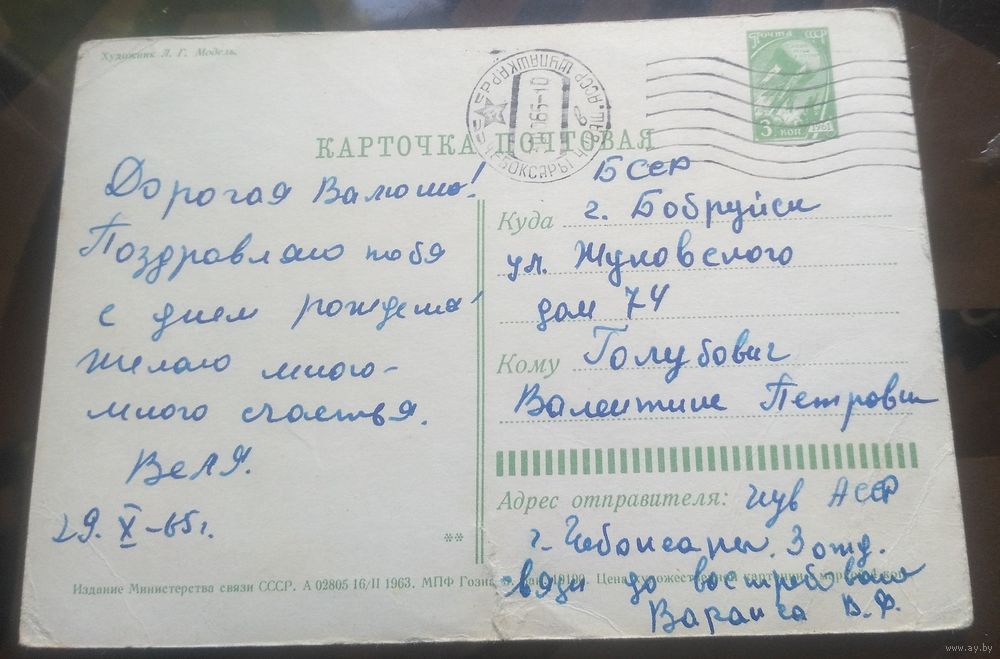 Художник Л. Г. Модель.
ПОЧТА СССР
3 КОП
1961
ЧЕБОКСАРЫ
КАРТОЧКА ПОЧТОВАЯ
Дорогая Валюша!
Поздравляю тебя
с днем рожденья!
Желаю много-
много счастья.
Веля.
29. X-65г.
**
БССР
Куда г. Бобруйск
ул. Жуковского
дом 74
Кому Голубович
Валентине Петровне
Адрес отправителя: Чув АССР
г. Чебоксары. 3 отд.
связи до востребования
В. Ф.
Издание Министерства связи СССР. А 02805 16/II 1963. МПФ Гозна
www.ay.by